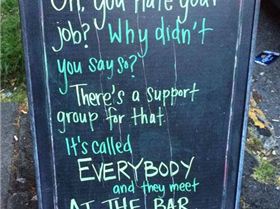 Oh, you hate your
job? Why didn't
you say so?
There's a support
group for that
It's called
EVERYBODY
and they meet
AT THE BAR